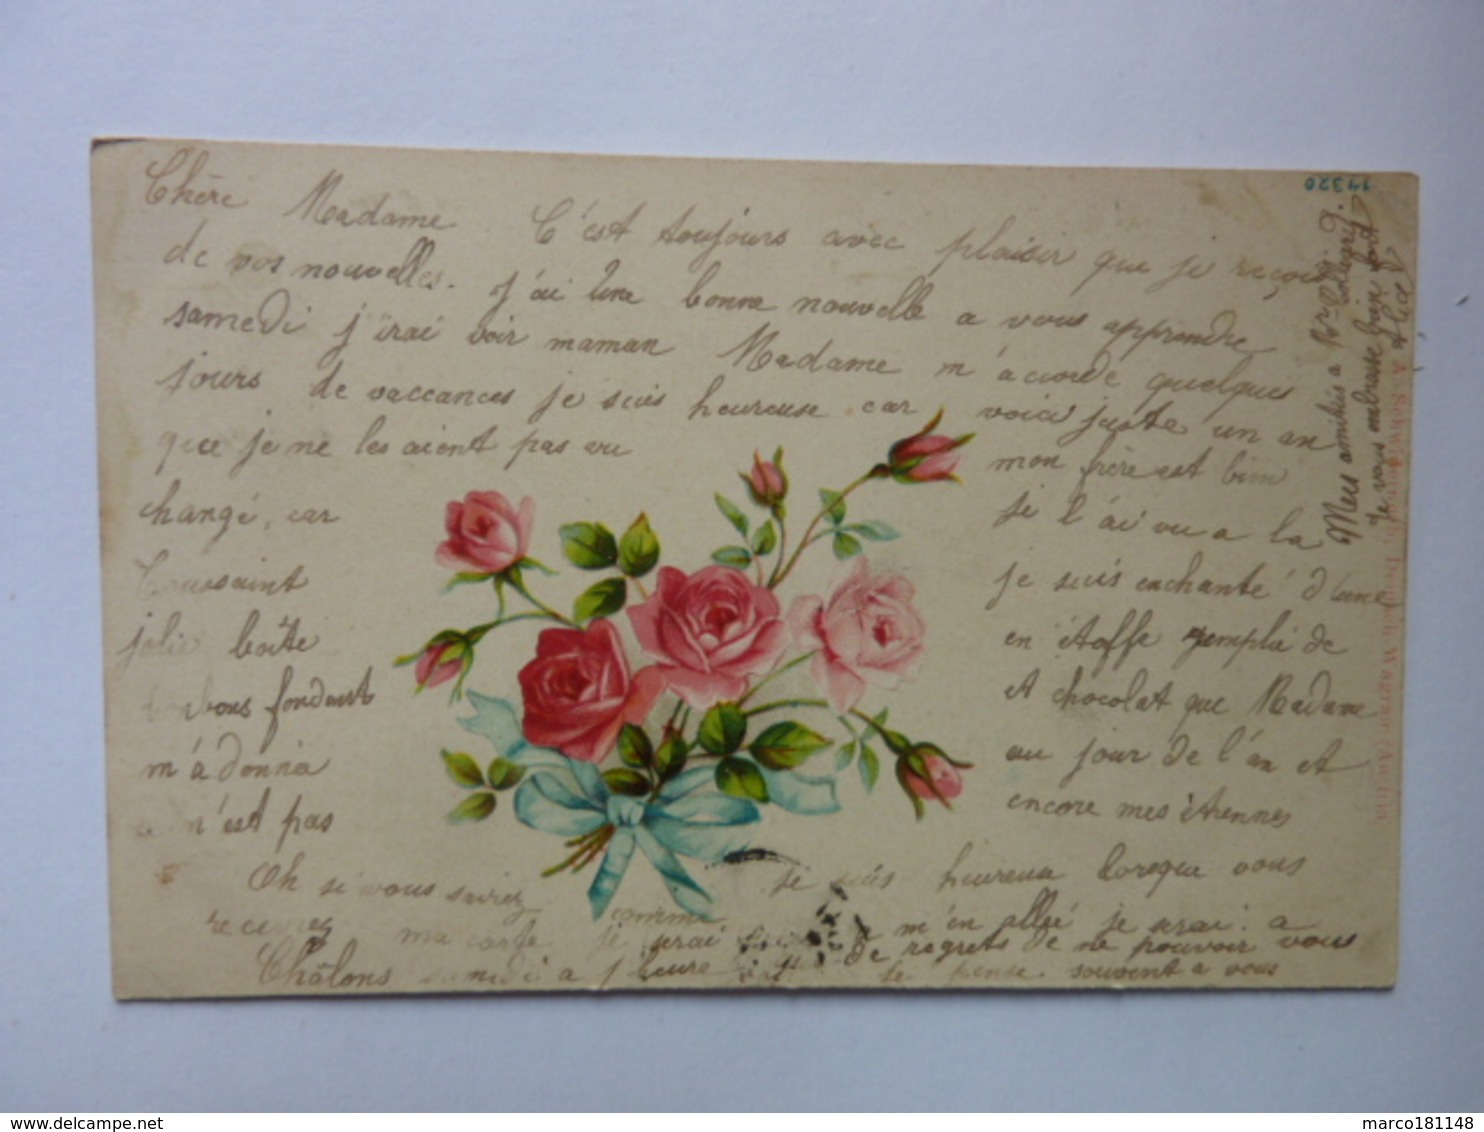 Chère Madame C'est toujours avec plaisir que je reçois
de vos nouvelles. J'ai une bonne nouvelle a vous apprendre
samedi j'irai voir maman Madame m'accorde quelques
jours de vaccances je suis heureuse car voici juste un an
que je ne les aient pas vu mon frère est bien
changé, car je l'ai vu a la
Toussaint je suis enchanté d'une
jolie boîte en étoffe remplie de
bonbons fondant et chocolat que Madame
m'a donnà au jour de l'an et
n'est pas encore mes étrennes
Oh si vous saviez comme je suis heureuse lorsque vous
recevrez ma carte je serai m'en allée je serai a
Châlons samedi a 1 heure de regrets de ne pouvoir vous
je pense souvent a vous
Mes amitiés a
Je vous embrasse bien fort
Alice
14320
marco181148
delcampe.net